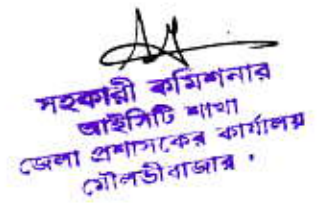 সহকারী কমিশনার
আইসিটি শাখা
জেলা প্রশাসকের কার্যালয়
মৌলভীবাজার ।